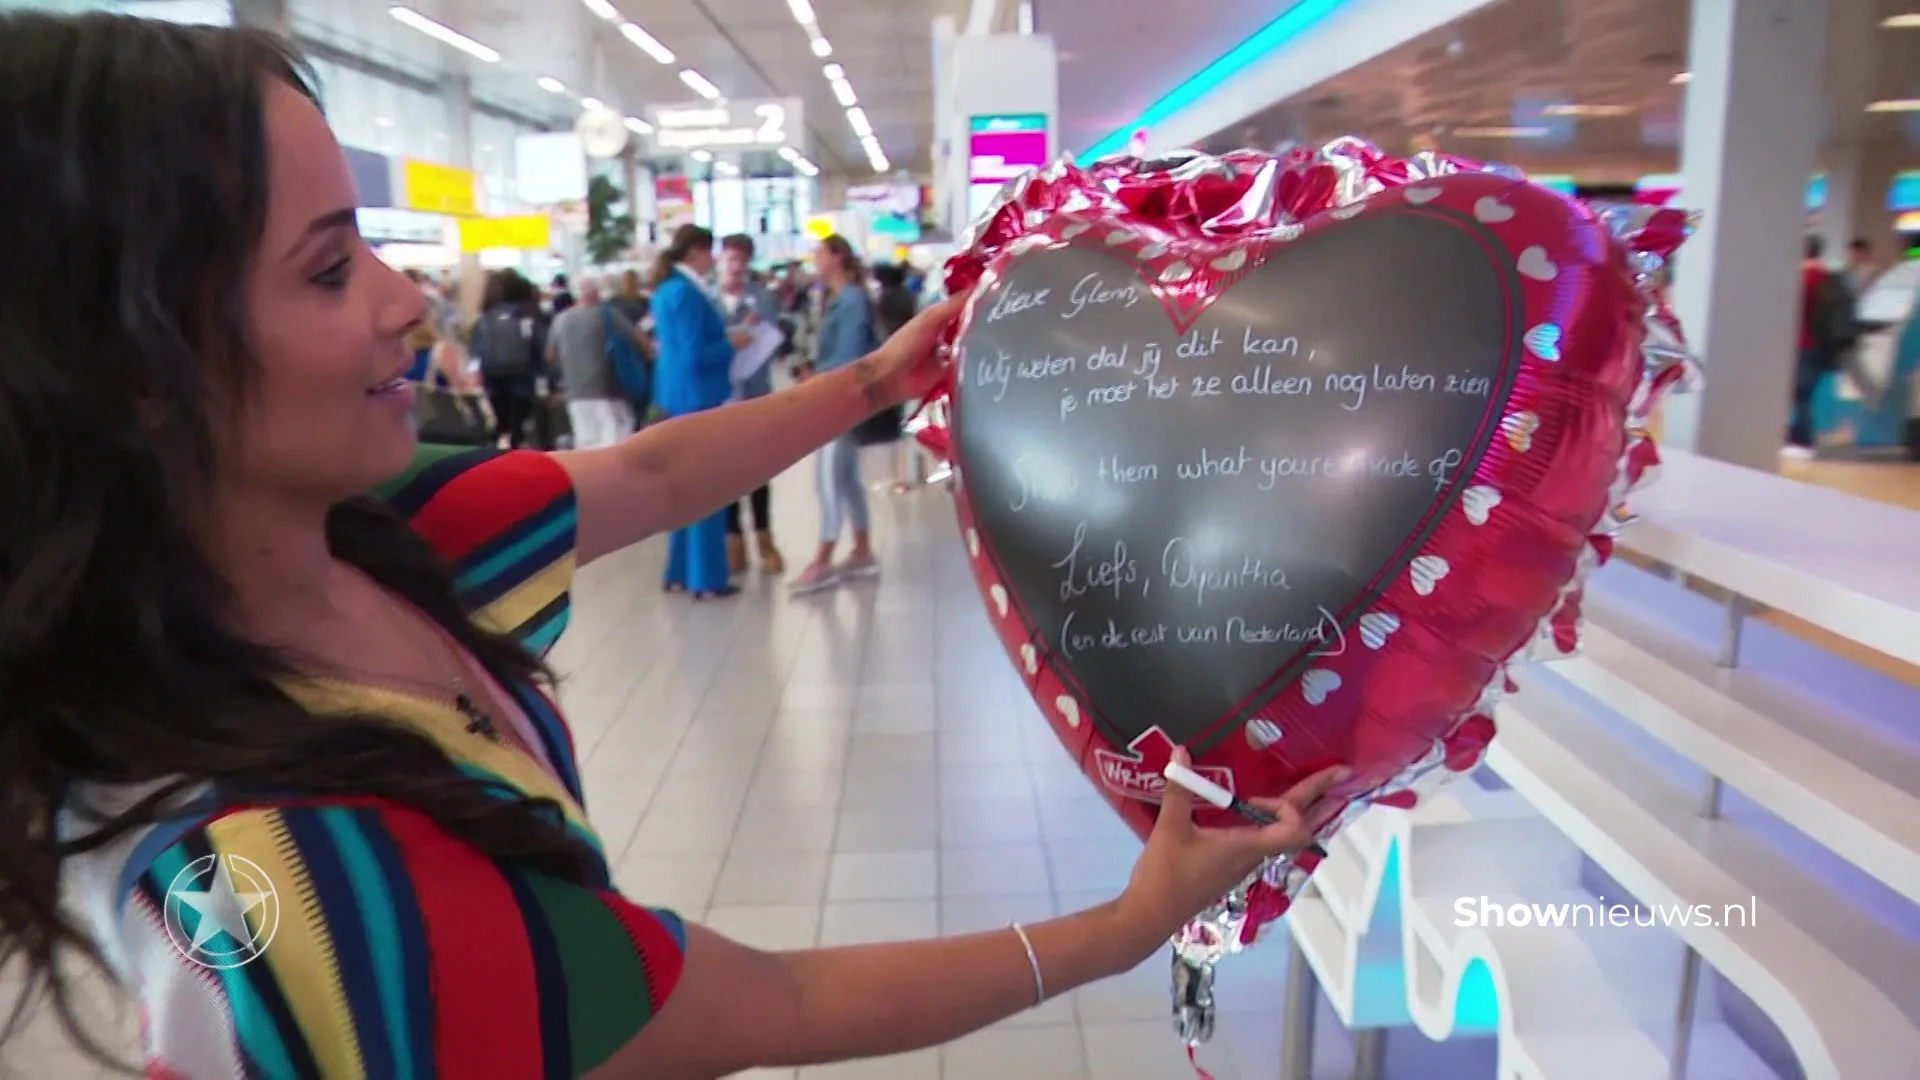 2
Lieve Glenn,
Wij weten dat jij dit kan,
je moet het ze alleen nog laten zien
Show them what youre made of
Liefs, Dyantha
(en de rest van Nederland)
Write
Shownieuws.nl